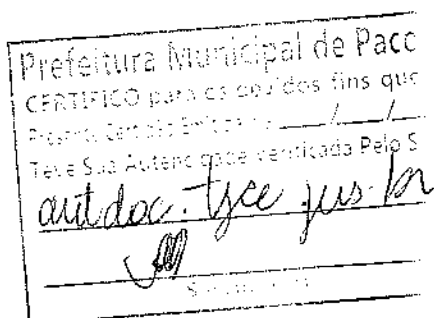 Prefeitura Municipal de Pacc
CERTIFICO para os devidos fins que
Presente Certidão Emitida / /
Teve Sua Autenticidade verificada Pelo S
autdoc.tjce.jus.br